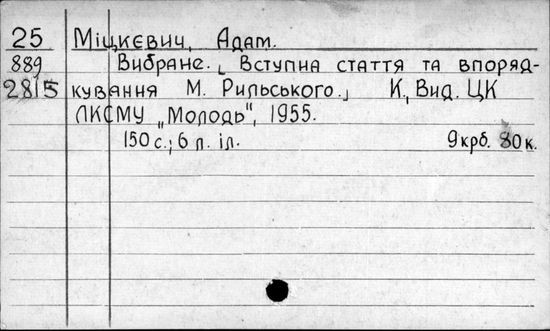 25 Міцкєвич, Адам.
889 Вибране. [Вступна стаття та впоряд-
2815 кування М. Рильського.] К., Вид. ЦК
ЛКСМУ „Молодь", 1955.
150 с.; 6 л. іл. 9 крб. 80 к.